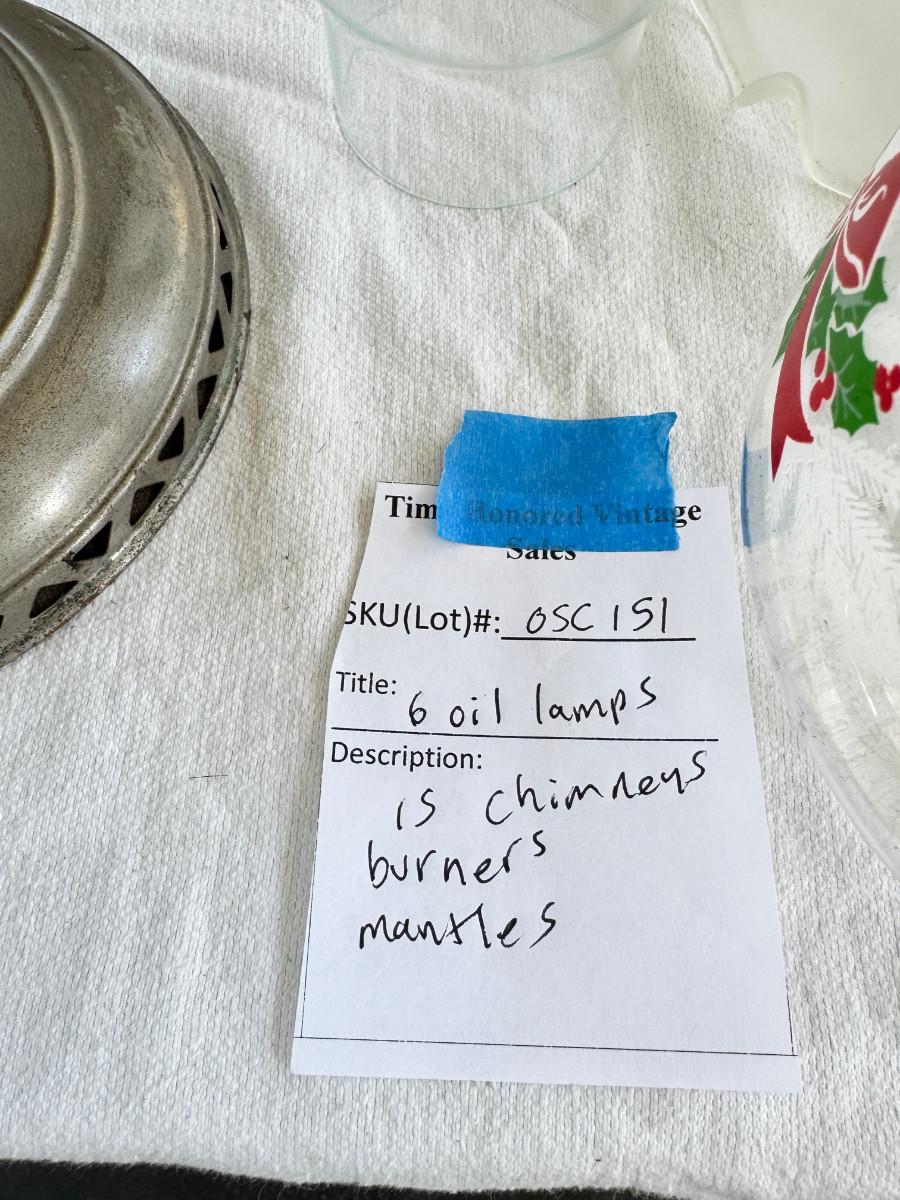 Tim Honored Vintage
Sales
SKU(Lot)#: OSC 151
Title: 6 oil lamps
Description:
15 chimneys
burners
mantles